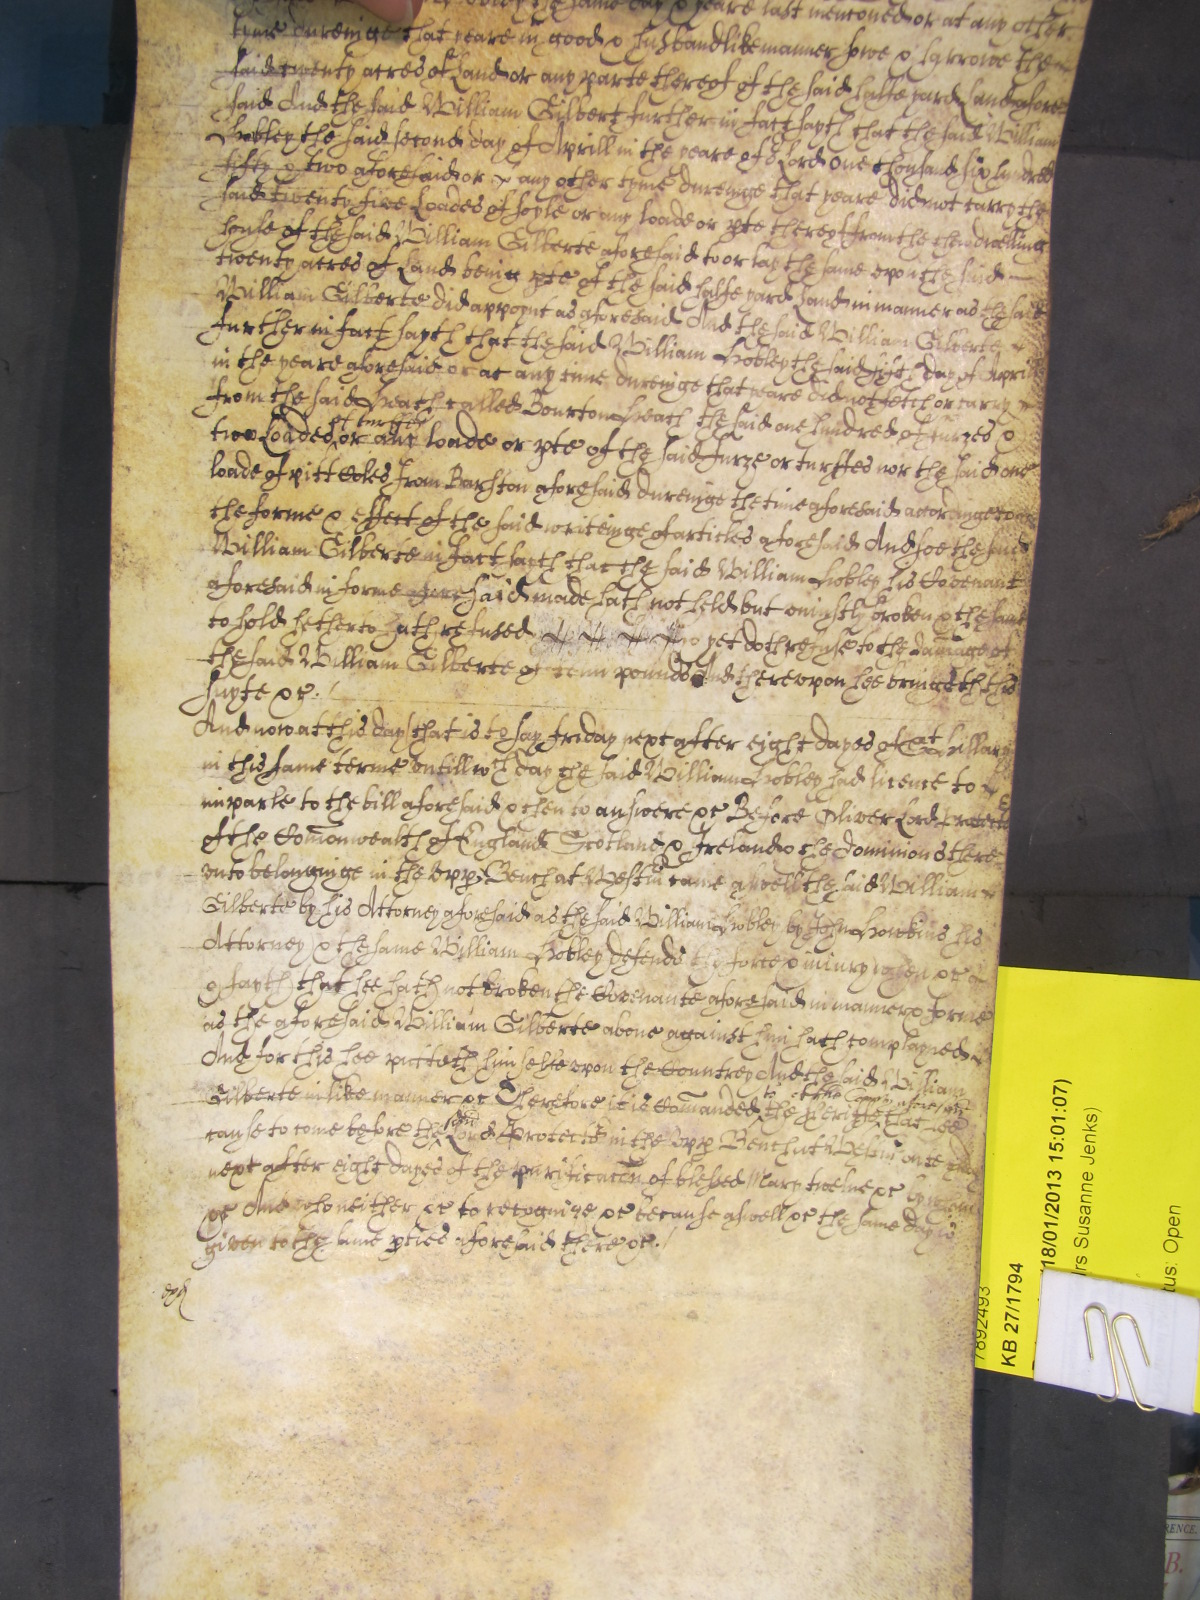 the same day & yeare last menconed or at any other
tyme dureinge that yeare in good & husbandlike manner sowe & harrowe the
said twenty acres of Land or any parte thereof of the said halfe yard Land afore
said And the said William Gilbert further in fact sayth that the said William
Hobley the said second day of Aprill in the yeare of or Lord one thousand six hundred
fifty & two aforesaid or any other tyme dureinge that yeare did not carry the
said twenty five Loades of soyle or any loade or pte thereof from the then dwellinge
house of the said William Gilberte aforesaid to or lay the same upon the said
twenty acres of Land being pte of the said halfe yard Land in manner as the said
William Gilberte did appoynt as aforesaid And the said William Gilberte
further in fact sayth that the said William Hobley the said fift day of Aprill
in the yeare aforesaid or at any time dureinge that yeare did not fetch or carry
from the said Heath called Bourton Heath the said one hundred of furzes &
two Loades of turffes or any loade or pte of the said furze or turffes nor the said one
loade of pitt Coles from Barston aforesaid dureinge the time aforesaid accordinge to
the forme & effect of the said writeinge of articles aforesaid And soe the said
William Gilberte in fact sayth that the said William Hobley his Covenant
aforesaid in forme aforesaid made hath not held but uniustly broken & the same
to hold hetherto hath refused & yet doth refuse to the damage of
the said William Gilberte of tenn pounds And thereupon hee bringeth this
suyte &c.
And now at this day that is to say friday next after eight dayes of St Hillary
in this same terme untill wch day the said William Hobley had licence to
imparle to the bill aforesaid & then to answere &c Before Oliver Lord Protector
of the Comonwealth of England Scotland & Ireland & the dominions there
unto belonginge in the upp Bench at Westm came aswell the said William
Gilberte by his Attorney aforesaid as the said William Hobley by John Howkins his
Attorney & the same William Hobley defends the force & iniury when &c
& sayth that hee hath not broken the Covenante aforesaid in manner & forme
as the aforesaid William Gilberte above against him hath complayned
And for this hee putteth himselfe upon the Countrey And the said William
Gilberte in like manner &c Therefore it is Comanded to the Sheriffe of the County aforesaid that hee
cause to come before the said Lord Protector in the upp Bench at Westm on
next after eight dayes of the purificacon of blessed Mary twelve &c by whom
&c And who neither &c to recognize &c because aswell &c the same day is
given to the same pties aforesaid there &c.
KB 27/1794
18/01/2013 15:01:07)
rs Susanne Jenks)
tus: Open
7892493
RENCE
B.